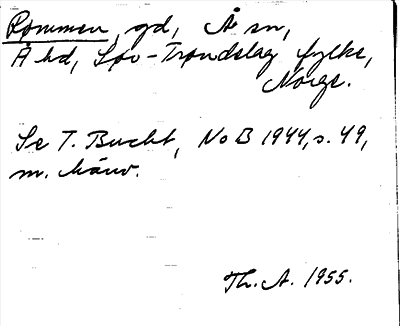 Rommen, gd, Å sn,
Å hd, Sør-Trøndelag fylke,
Norge.
Se T. Bucht, NoB 1944, s. 49,
m. hänv.
Th. A. 1955.